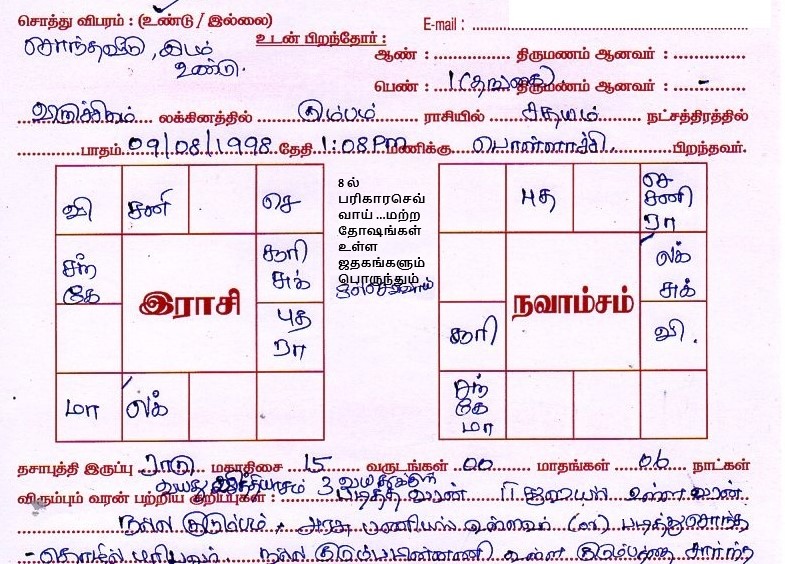 சொத்து விபரம் : (உண்டு / இல்லை) E-mail :
சொந்தவீடு, இடம் உண்டு.
உடன் பிறந்தோர் :
ஆண் : திருமணம் ஆனவர் :
பெண் : 1 திருமணம் ஆனவர் : -
விருச்சிகம் லக்கினத்தில் கும்பம் ராசியில் சதயம் நட்சத்திரத்தில்
பாதம் 09/08/1998 தேதி 1:08 PM மணிக்கு பொள்ளாச்சி பிறந்தவர்.
வி சனி செ
சந் கே
சூரி சுக்
இராசி
புத ரா
மா லக்
8 ல்
பரிகாரசெவ்
வாய் ...மற்ற
தோஷங்கள்
உள்ள
ஜதகங்களும்
பொருந்தும்
புத
செ சனி ரா
லக் சுக்
நவாம்சம்
சூரி வி.
சந் கே மா
தசாபுத்தி இருப்பு ராகு மகாதிசை 15 வருடங்கள் 00 மாதங்கள் 06 நாட்கள்
வயது வித்தியாசம் 3
விரும்பும் வரன் பற்றிய குறிப்புகள் : படித்த வரன் உள்ள வரன்
நல்ல குடும்பம், அரசு பணியில் உள்ளவர் (or) படித்து சொந்த
தொழில் புரிபவர் நல்ல குடும்ப பின்னணி உள்ள குடும்பத்தை சார்ந்த